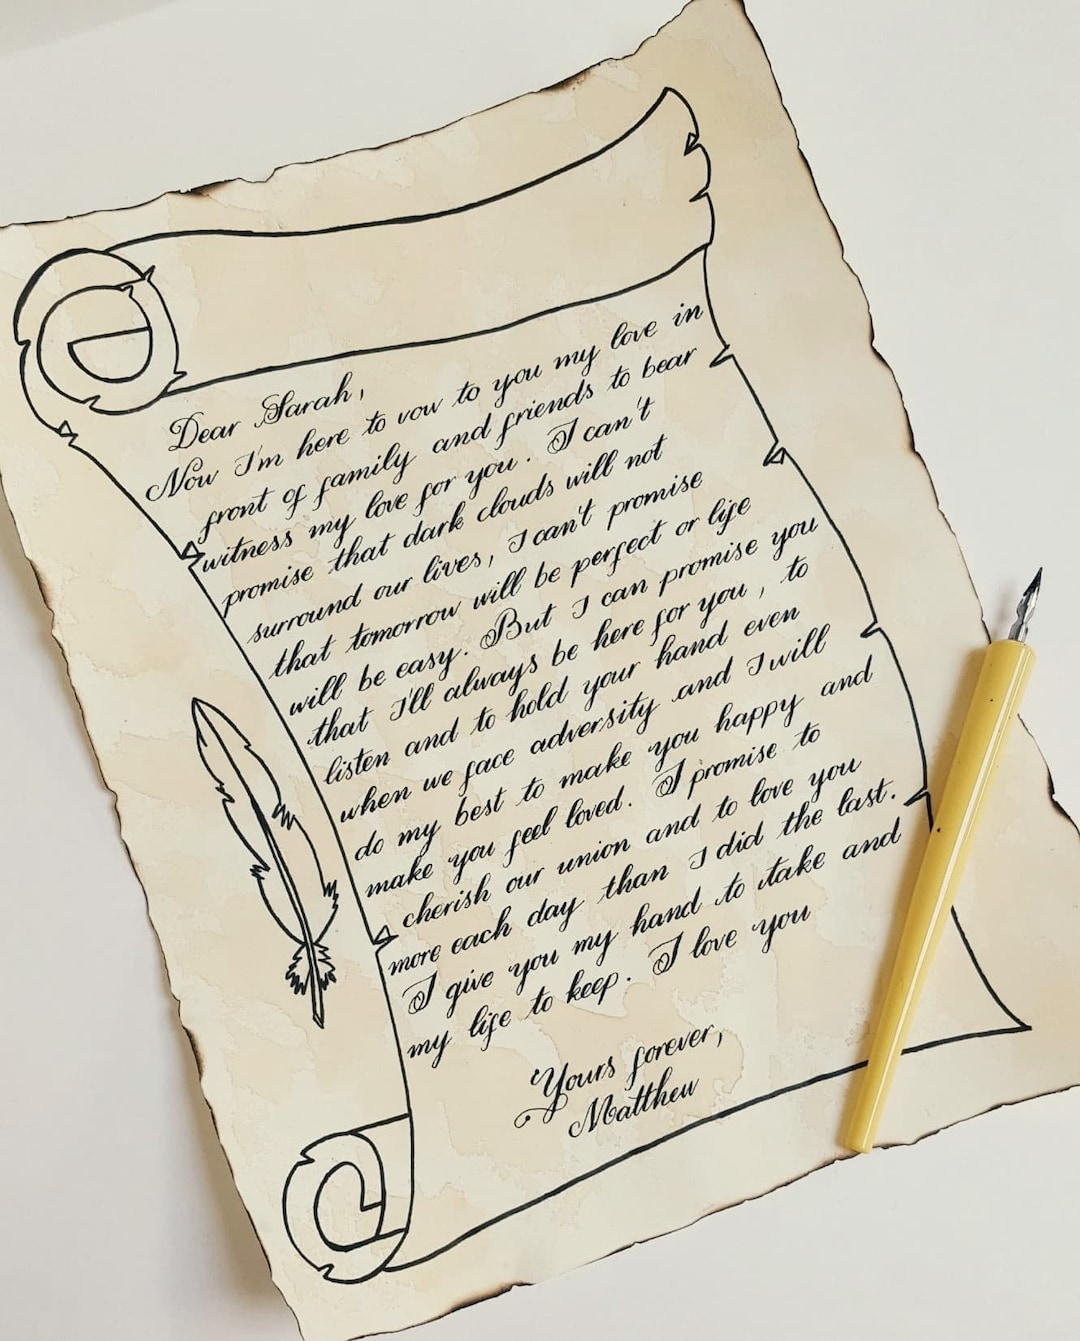 Dear Sarah,
Now I'm here to vow to you my love in
front of family and friends to bear
witness my love for you. I can't
promise that dark clouds will not
surround our lives, I can't promise
that tomorrow will be perfect or life
will be easy. But I can promise you
that I'll always be here for you, to
listen and to hold your hand even
when we face adversity and I will
do my best to make you happy and
make you feel loved. I promise to
cherish our union and to love you
more each day than I did the last.
I give you my hand to take and
my life to keep. I love you
Yours forever,
Matthew